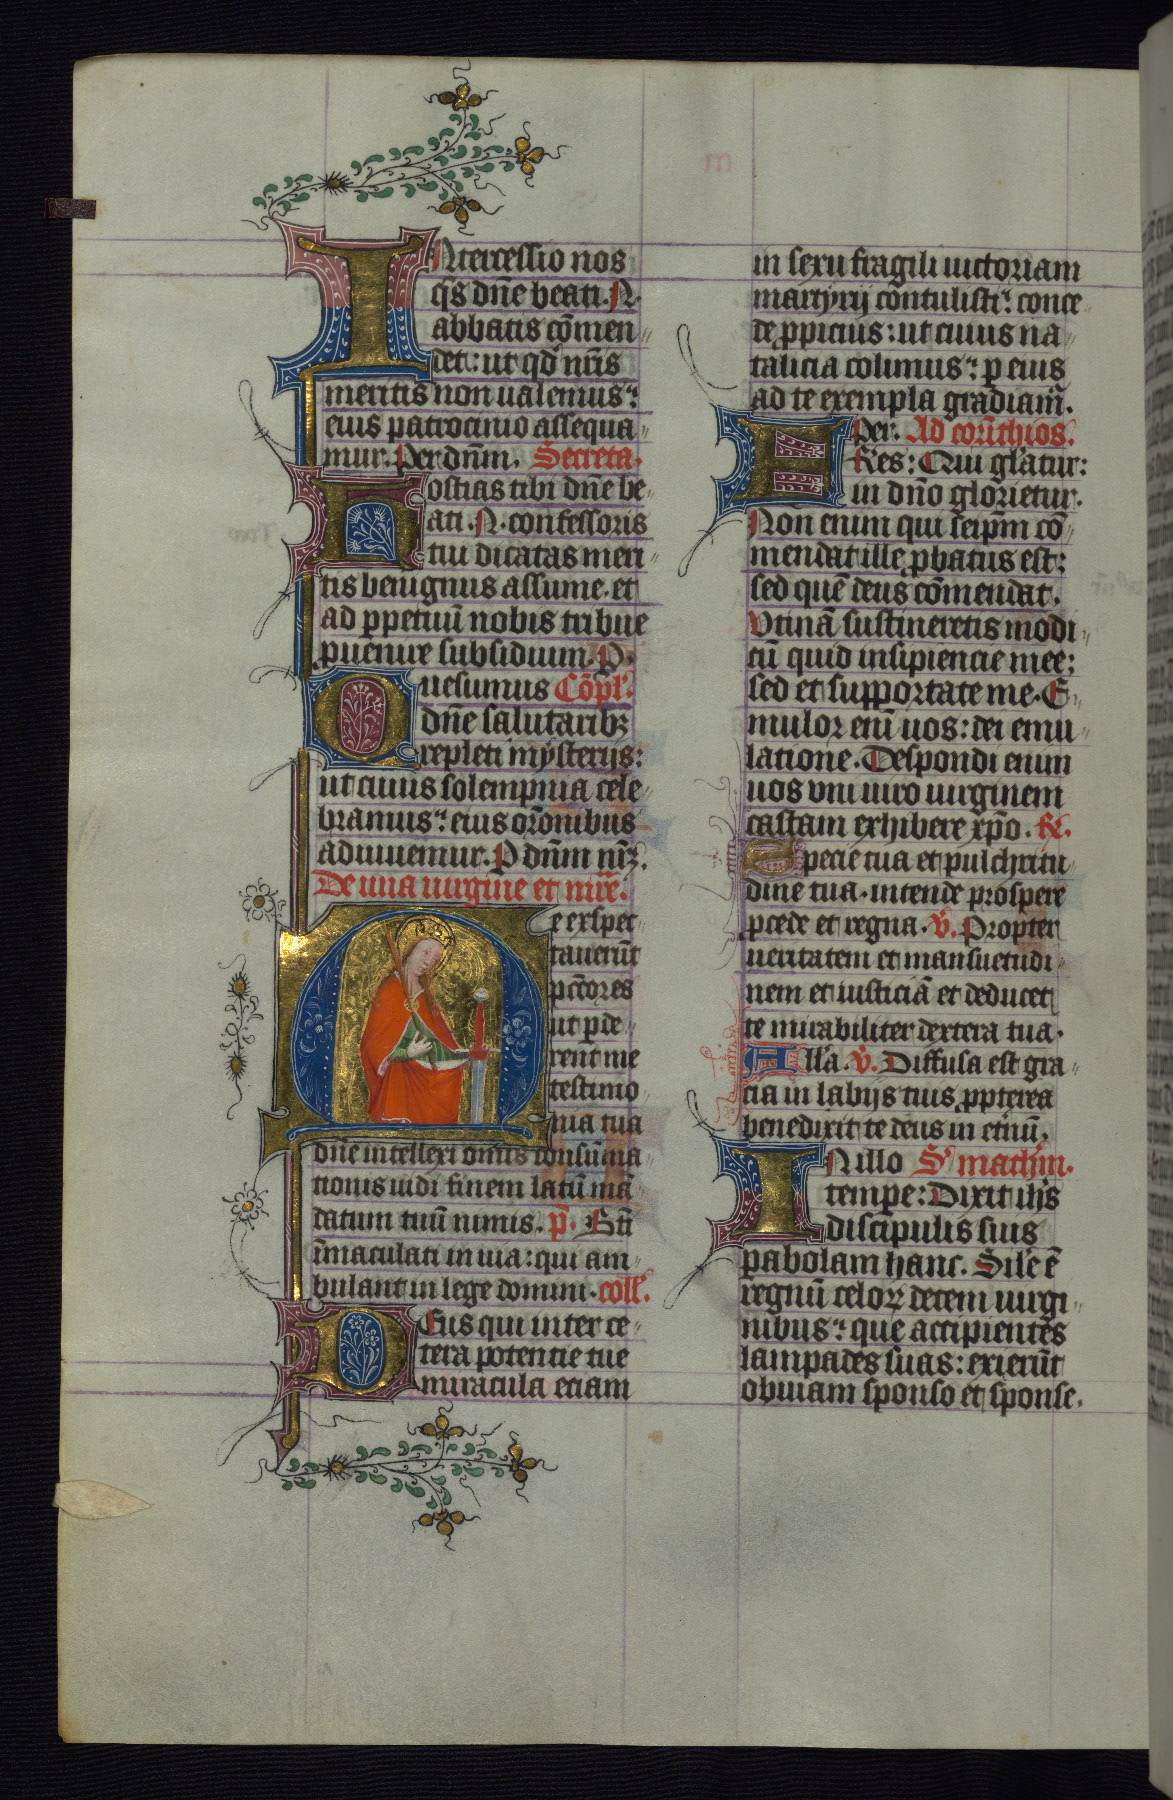 Intercessio nos
qs̄ dn̄e beati .N.
abbatis cōmen
det: ut qd̄ nr̄is
meritis non ualemus:
eius patrocinio assequa
mur. Per dn̄m. Secreta.
Hostias tibi dn̄e be
ati .N. confessoris
tui dicatas meri
tis benignus assume. et
ad ꝑpetuū nobis tribue
ꝓuenire subsidium. P.
Quesumus Cōpl'.
dn̄e salutaribꝫ
repleti mysterijs:
ut cuius solempnia cele
bramus: eius orōnibus
adiuuemur. P dn̄m nr̄ꝫ.
De una uirgine et mr̄e.
Me exspec
tauerūt
pctōres
ut ꝑde
rent me
testimo
nia tua
dn̄e intellexi omīs consūma
tionis uidi finem latū mā
datum tuū nimis. p̄. Bt̄i
īmaculati in uia: qui am
bulant in lege domini. coll'.
Deus qui inter ce
tera potencie tue
miracula etiam
in sexu fragili uictoriam
martyrij contulisti: conce
de ꝓpicius: ut cuius na
talicia colimus: ꝑ eius
ad te exempla gradiam̄.
Per. Ad corīthios.
Fres: Qui gl'atur:
in dn̄o glorietur.
Non enim qui seip̄m cō
mendat ille ꝓbatus est:
sed quē deus cōmendat.
Vtinā sustineretis modi
cū quid insipiencie mee:
sed et supportate me. E
muloꝝ enī uos: dei emu
latione. Despondi enim
uos vni uiro uirginem
castam exhibere xp̄o. R.
Specie tua et pulchritu
dine tua. intende prospere
ꝓcede et regna. V. Propter
ueritatem et mansuetudi
nem et iusticiā et deducet
te mirabiliter dextera tua.
All'a. V. Diffusa est gra
cia in labijs tuis ꝓpterea
benedixit te deus in et̄nū.
IN illo S' mathm̄.
tempe: Dixit ih̄s
discipulis suis
ꝑabolam hanc. Sil'e ē
regnū celoꝝ decem uirgi
nibus: que accipientes
lampades suas: exierūt
obuiam sponso et sponse.